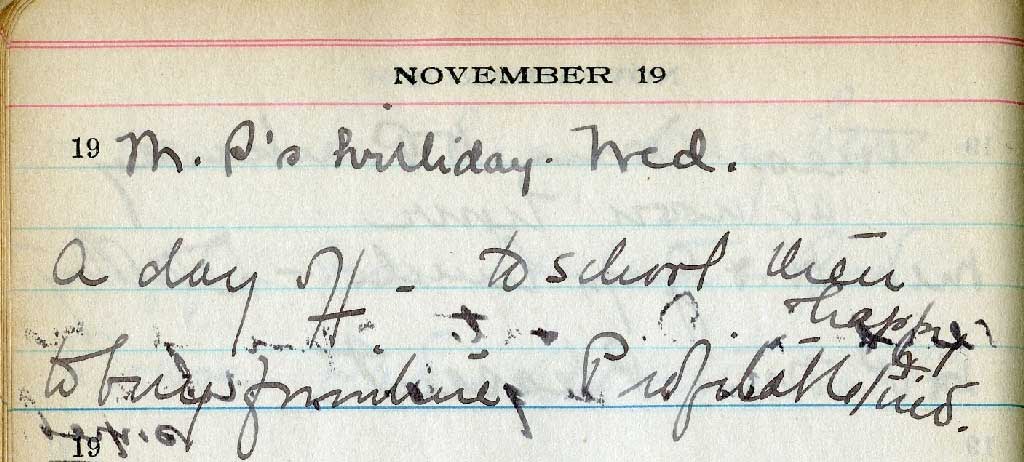 NOVEMBER 19
19 M. P's birthday. Wed.
A day off - to school then
happy
to buy furniture, Profitable / and
19